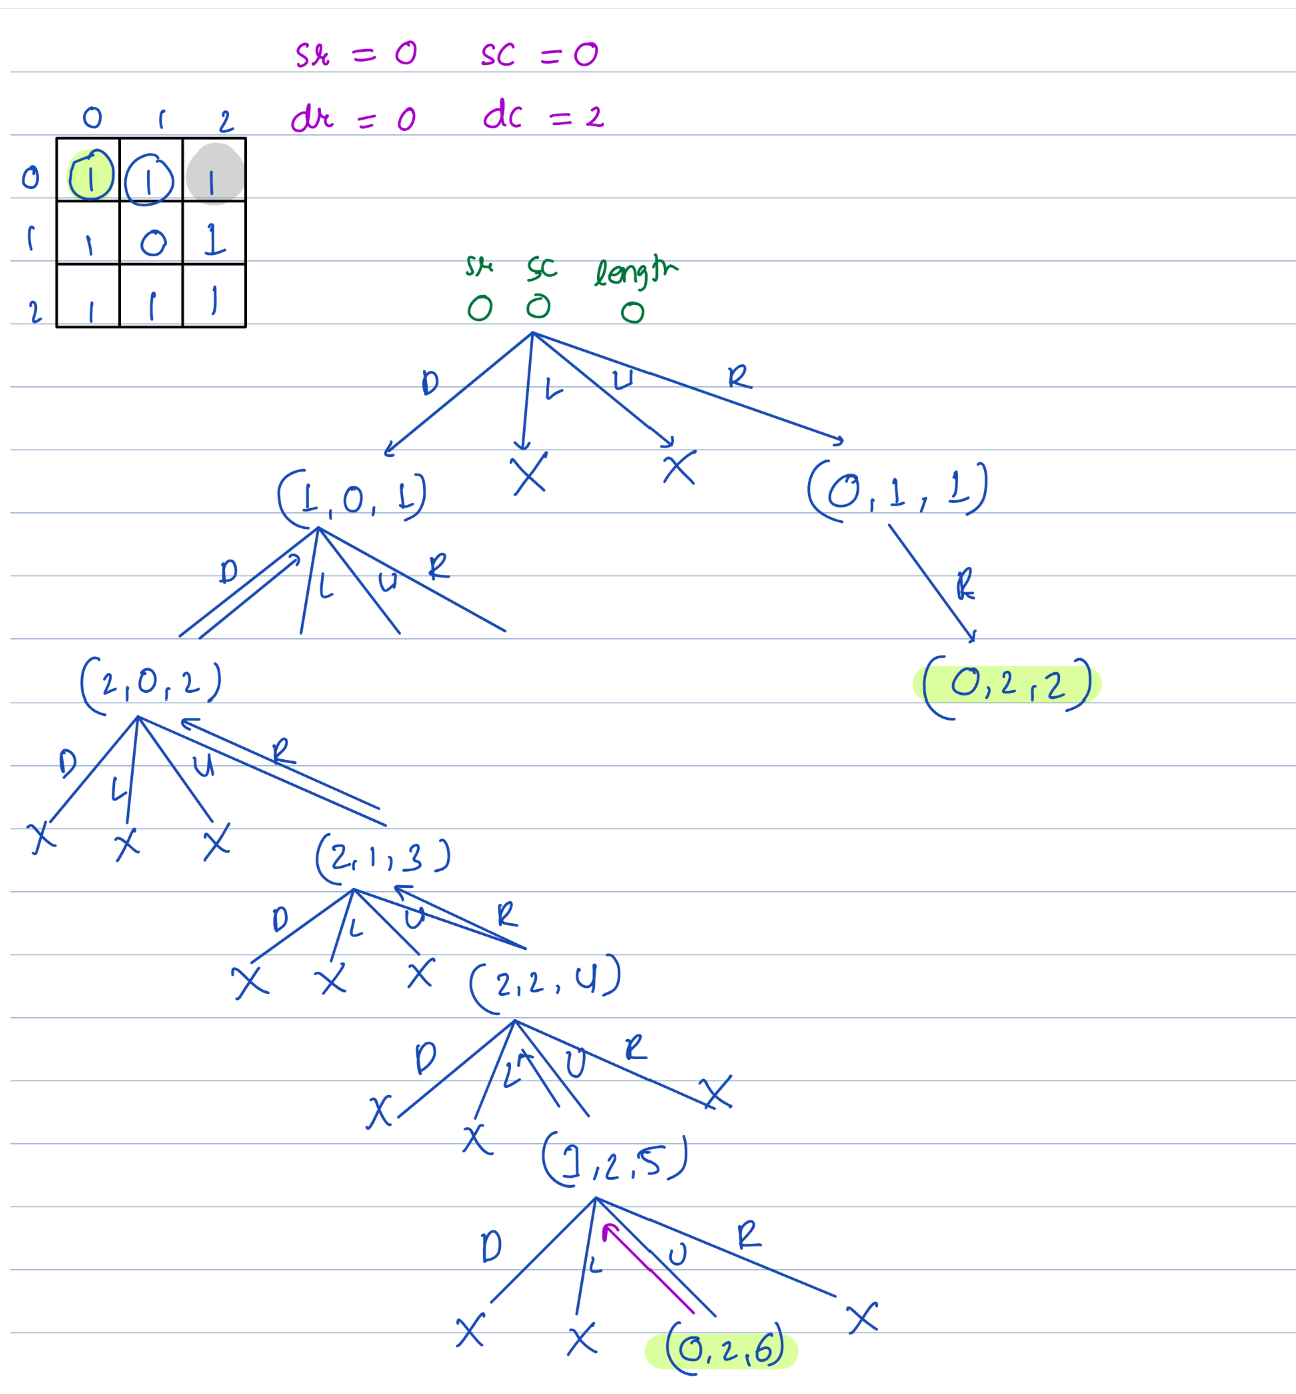 sr = 0 sc = 0
dr = 0 dc = 2
0 1 2
0 1 1 1
1 1 0 1
2 1 1 1
sr sc length
0 0 0
D L U R
X X
(1,0,1) (0,1,1)
D L U R R
(2,0,2) (0,2,2)
D L U R
X X X
(2,1,3)
D L U R
X X X (2,2,4)
D L U R
X X X
(1,2,5)
D L U R
X X (0,2,6) X